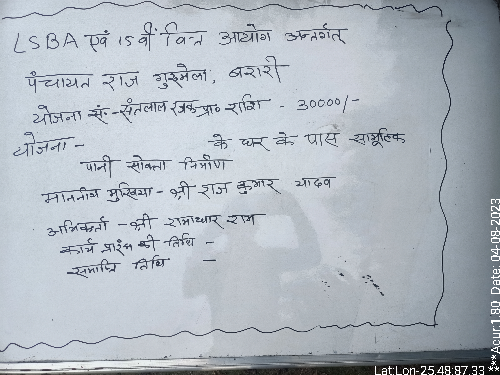 LSBA एवं 15वीं वित्त आयोग अन्तर्गत
पंचायत राज गुरुमेला, बरारी
योजना सं॰- संतलाल रजक प्रा॰ राशि - 30000/-
योजना - के घर के पास सामूहिक
पानी सोख्ता निर्माण
माननीय मुखिया - श्री राज कुमार यादव
अभिकर्ता - श्री रामाधार राम
कार्य प्रारंभ की तिथि -
समाप्ति तिथि -
Lat:Lon-25.48:87.33
***Acur:1.80 Date: 04-08-2023